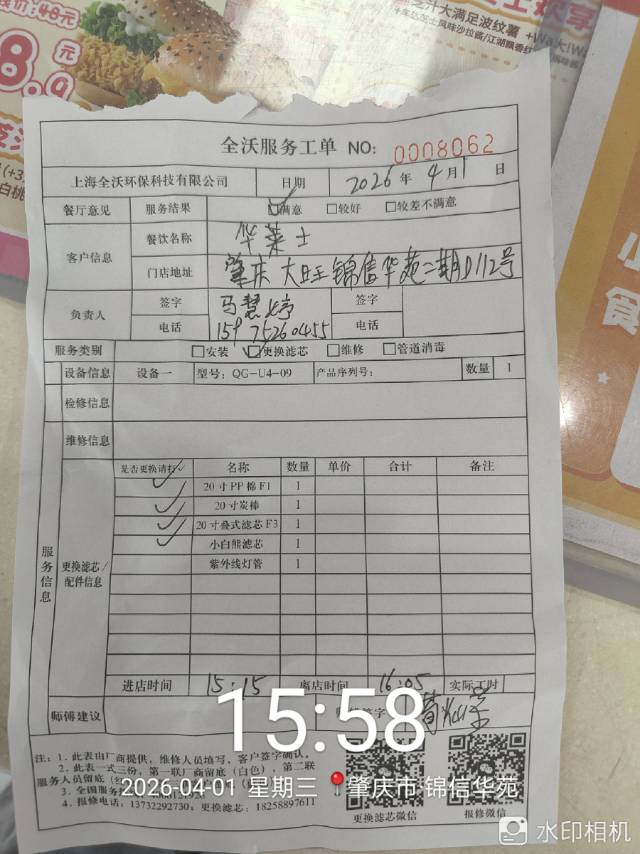 芝汁大满足波纹薯 +Wa大W
8.9
全沃服务工单 NO: 0008062
上海全沃环保科技有限公司 日期 2026 年 4 月 1 日
餐厅意见 服务结果 满意 较好 较差不满意
客户信息 餐饮名称 华莱士
门店地址 肇庆大旺锦信华苑二期D112号
负责人 签字 马慧婷 签字
电话 159 7526 0455 电话
服务类别 安装 更换滤芯 维修 管道消毒
设备信息 设备一 型号: QG-U4-09 产品序列号: 数量 1
检修信息
维修信息
服务信息
更换滤芯/配件信息
是否更换请打√ 名称 数量 单价 合计 备注
√ 20寸PP棉F1 1
√ 20寸炭棒 1
√ 20寸叠式滤芯F3 1
√ 小白熊滤芯 1
紫外线灯管 1
进店时间 15:15 离店时间 16:05 实际工时
师傅建议 签字
15:58
注: 1. 此表由厂商提供, 维修人员填写, 客户签字确认。
2. 此表一式三份, 第一联厂商留底(白色), 第二联
服务人员留底
3. 全国服务
4. 报修电话: 13732292730; 更换滤芯: 18258897611
更换滤芯微信 报修微信
2026-04-01 星期三 肇庆市·锦信华苑
水印相机
食